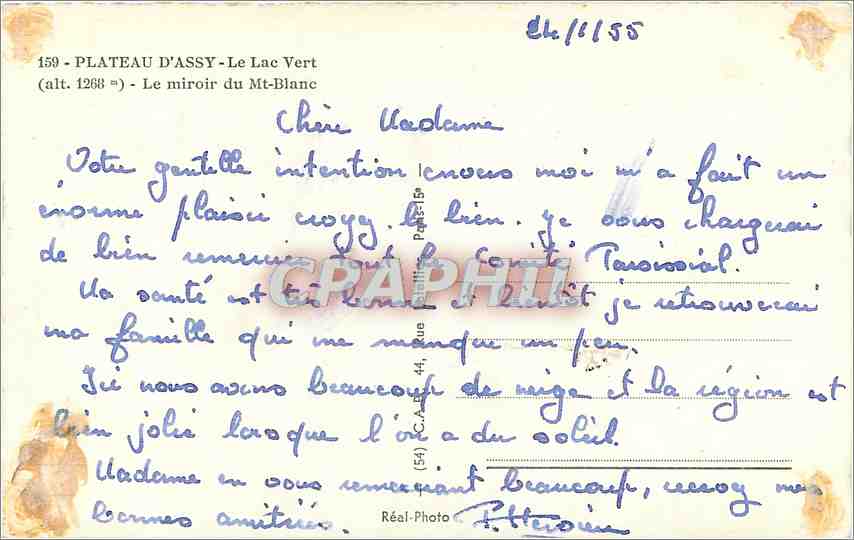 24/1/55
159 - PLATEAU D'ASSY - Le Lac Vert
(alt. 1268 m) - Le miroir du Mt-Blanc
Chère Madame
Votre gentille intention envers moi m'a fait un
énorme plaisir croyez le bien. Je vous chargerai
de bien remercier tout le Comité Paroissial.
Ma santé est très bonne et bientôt je retrouverai
ma famille qui me manque un peu.
Ici nous avons beaucoup de neige et la région est
bien jolie lorsque l'on a du soleil.
Madame en vous remerciant beaucoup, recevez mes
bonnes amitiés.
Réal-Photo
(54) C.A.P. 44, Rue Paris-15e
CPAPHIL